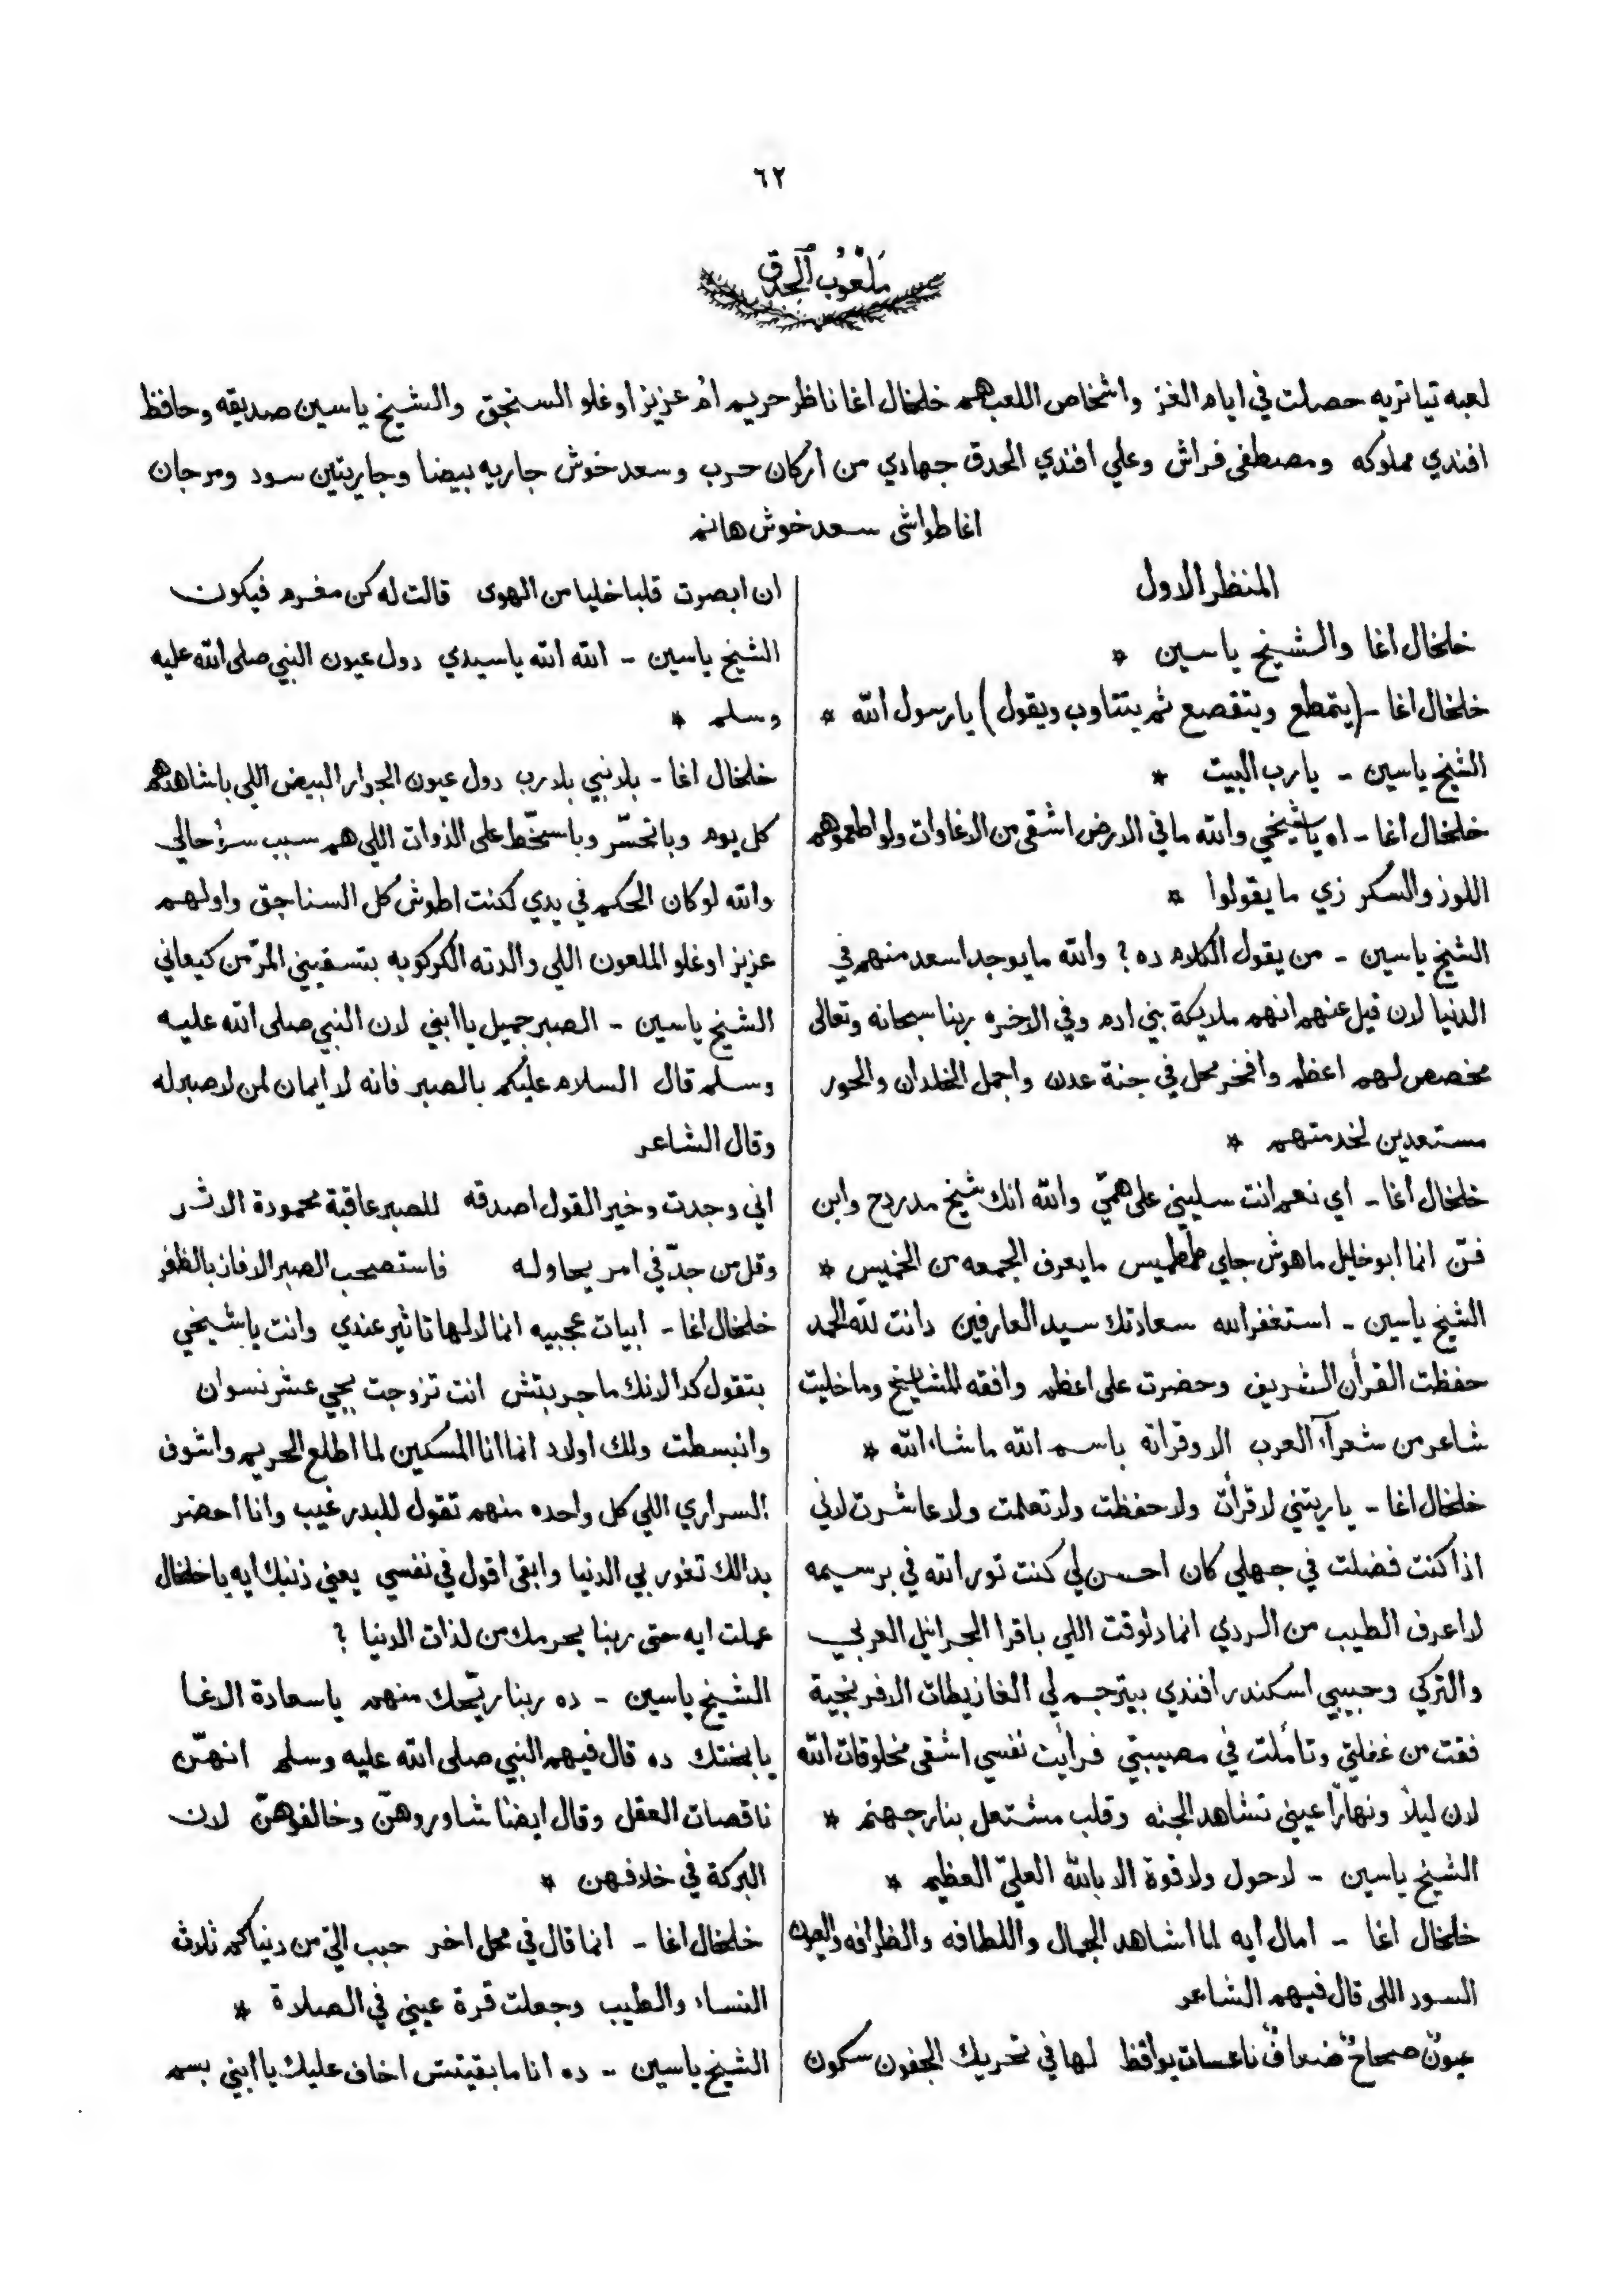 ٦٢
مَلْعُوبُ الحدق
لعبه تياتريه حصلت في ايام الغز واشخاص اللعب هم خلخال اغا ناظر حريم ام عزيز اوغلو السنجق والشيخ ياسين صديقه وحافظ
افندي مملوكه ومصطفى فراش وعلي افندي الحدق جهادي من اركان حرب وسعد خوش جاريه بيضا وجاريتين سود ومرجان
اغا طواشى سعد خوش هانم
المنظر الاول
خلخال اغا والشيخ ياسين *
خلخال اغا - (يتمطع ويتقصع ثم يتتاوب ويقول) يا رسول الله *
الشيخ ياسين - يا رب البيت *
خلخال اغا - اه يا شيخي والله ما في الارض اشقى من الاغاوات ولو اطعموهم
اللوز والسكر زي ما يقولوا *
الشيخ ياسين - من يقول الكلام ده ? والله ما يوجد اسعد منهم في
الدنيا لان قيل عنهم انهم ملايكة بني ادم وفي الاخره ربنا سبحانه وتعالى
مخصص لهم اعظم وافخر محل في جنة عدن واجمل الخلدان والحور
مستعدين لخدمتهم *
خلخال اغا - اي نعم انت سليني على همّي والله انك شيخ مدردح وابن
فنّ انما ابو خليل ماهوش جاي طمطميس ما يعرف الجمعه من الخميس *
الشيخ ياسين - استغفر الله سعادتك سيد العارفين دانت لله الحمد
حفظت القرأن الشريف وحضرت على اعظم وافقه المشايخ وما خليت
شاعر من شعرآء العرب الا وقراته باسم الله ما شاء الله *
خلخال اغا - يا ريتني لا قرأت ولا حفظت ولا تعلمت ولا عاشرت لاني
اذا كنت فضلت في جهلي كان احسن لي كنت تور الله في برسيمه
لا اعرف الطيب من الردي انما دلوقت اللي باقرا الجرانيل العربي
والتركي وحبيبي اسكندر افندي بيترجم لي الغازيطات الافرنجية
فقت من غفلتي وتأملت في مصيبتي فرأيت نفسي اشقى مخلوقات الله
لان ليلاً ونهاراً عيني تشاهد الجنه وقلب مشتعل بنار جهنم *
الشيخ ياسين - لا حول ولا قوة الا بالله العليّ العظيم *
خلخال اغا - امال ايه لما اشاهد الجمال واللطافه والظرافه والعيون
السود اللي قال فيهم الشاعر
عيونٌ صحاحٌ ضعافٌ ناعسات يواقظ لها في تحريك الجفون سكون
ان ابصرت قلبا خليا من الهوى قالت له كن مغرم فيكون
الشيخ ياسين - الله الله يا سيدي دول عيون النبي صلى الله عليه
وسلم *
خلخال اغا - بلا نبي بلا رب دول عيون الجوار البيض اللي باشاهدهم
كل يوم وباتحسّر وباسخّط على الذوات اللي هم سبب سوء حالي
والله لو كان الحكم في يدي لكنت اطوش كل السناجق واولهم
عزيز اوغلو الملعون اللي والدته الكركوبه بتسقيني المرّ من كيعاني
الشيخ ياسين - الصبر جميل يا ابني لان النبي صلى الله عليه
وسلم قال السلام عليكم بالصبر فانه لا ايمان لمن لا صبر له
وقال الشاعر
اني وجدت وخير القول اصدقه للصبر عاقبة محمودة الاثر
وقل من جدّ في امر يحاوله فاستصحب الصبر الا فاز بالظفر
خلخال اغا - ابيات عجيبه انما لا لها تاثير عندي وانت يا شيخي
بتقول كدا لانك ما جربتش انت تزوجت ييجي عشر نسوان
وانبسطت ولك اولاد انما انا المسكين لما اطلع الحريم واشوف
السراري اللي كل واحده منهم تقول للبدر غيب وانا احضر
بدالك تغور بي الدنيا وابقى اقول في نفسي يعني ذنبك ايه يا خلخال
عملت ايه حتى ربنا يحرمك من لذات الدنيا ?
الشيخ ياسين - ده ربنا ريّحك منهم يا سعادة الاغا
يا بختك ده قال فيهم النبي صلى الله عليه وسلم انهنّ
ناقصات العقل وقال ايضاً شاوروهنّ وخالفوهنّ لان
البركة في خلافهن *
خلخال اغا - انما قال في محل اخر حبب اليّ من دنياكم ثلاث
النساء والطيب وجعلت قرة عيني في الصلاة *
الشيخ ياسين - ده انا ما بقيتش اخاف عليك يا ابني بسم